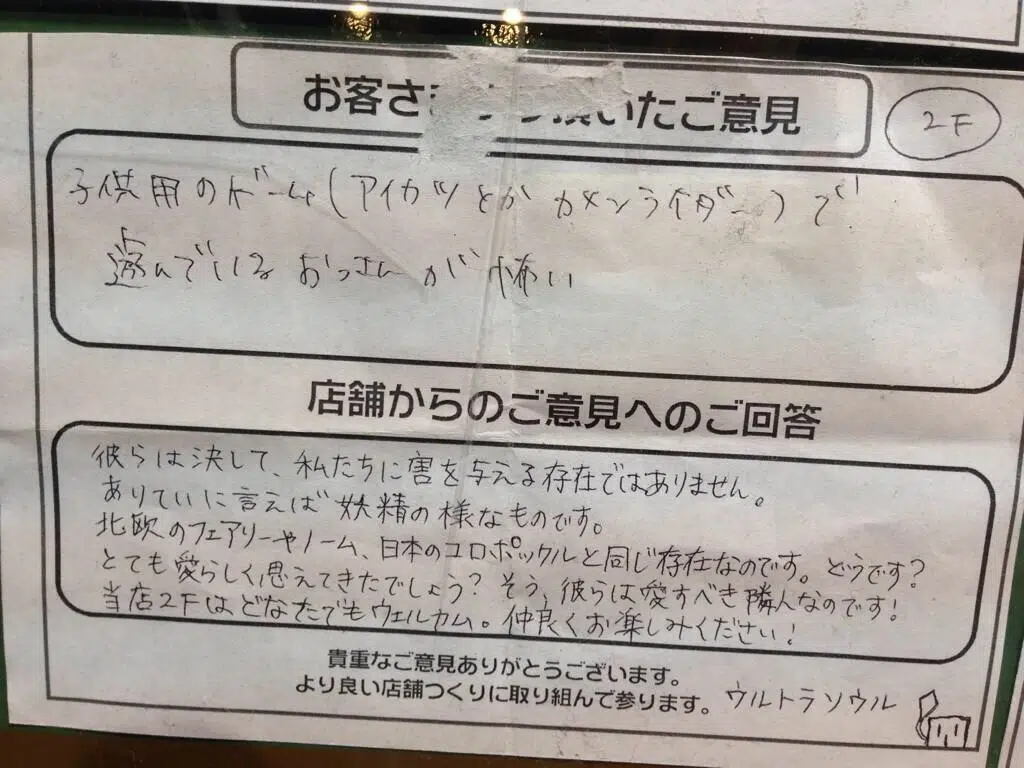 お客さ
いたご意見
2F
子供用のゲーム(アイカツとかカメンライダー)で
遊んでいるおっさんが怖い
店舗からのご意見へのご回答
彼らは決して、私たちに害を与える存在ではありません。
ありていに言えば妖精の様なものです。
北欧のフェアリーやノーム、日本のコロポックルと同じ存在なのです。どうです?
とても愛らしく思えてきたでしょう?そう、彼らは愛すべき隣人なのです!
当店2Fはどなたでもウェルカム。仲良くお楽しみください!
貴重なご意見ありがとうございます。
より良い店舗つくりに取り組んで参ります。
ウルトラソウル